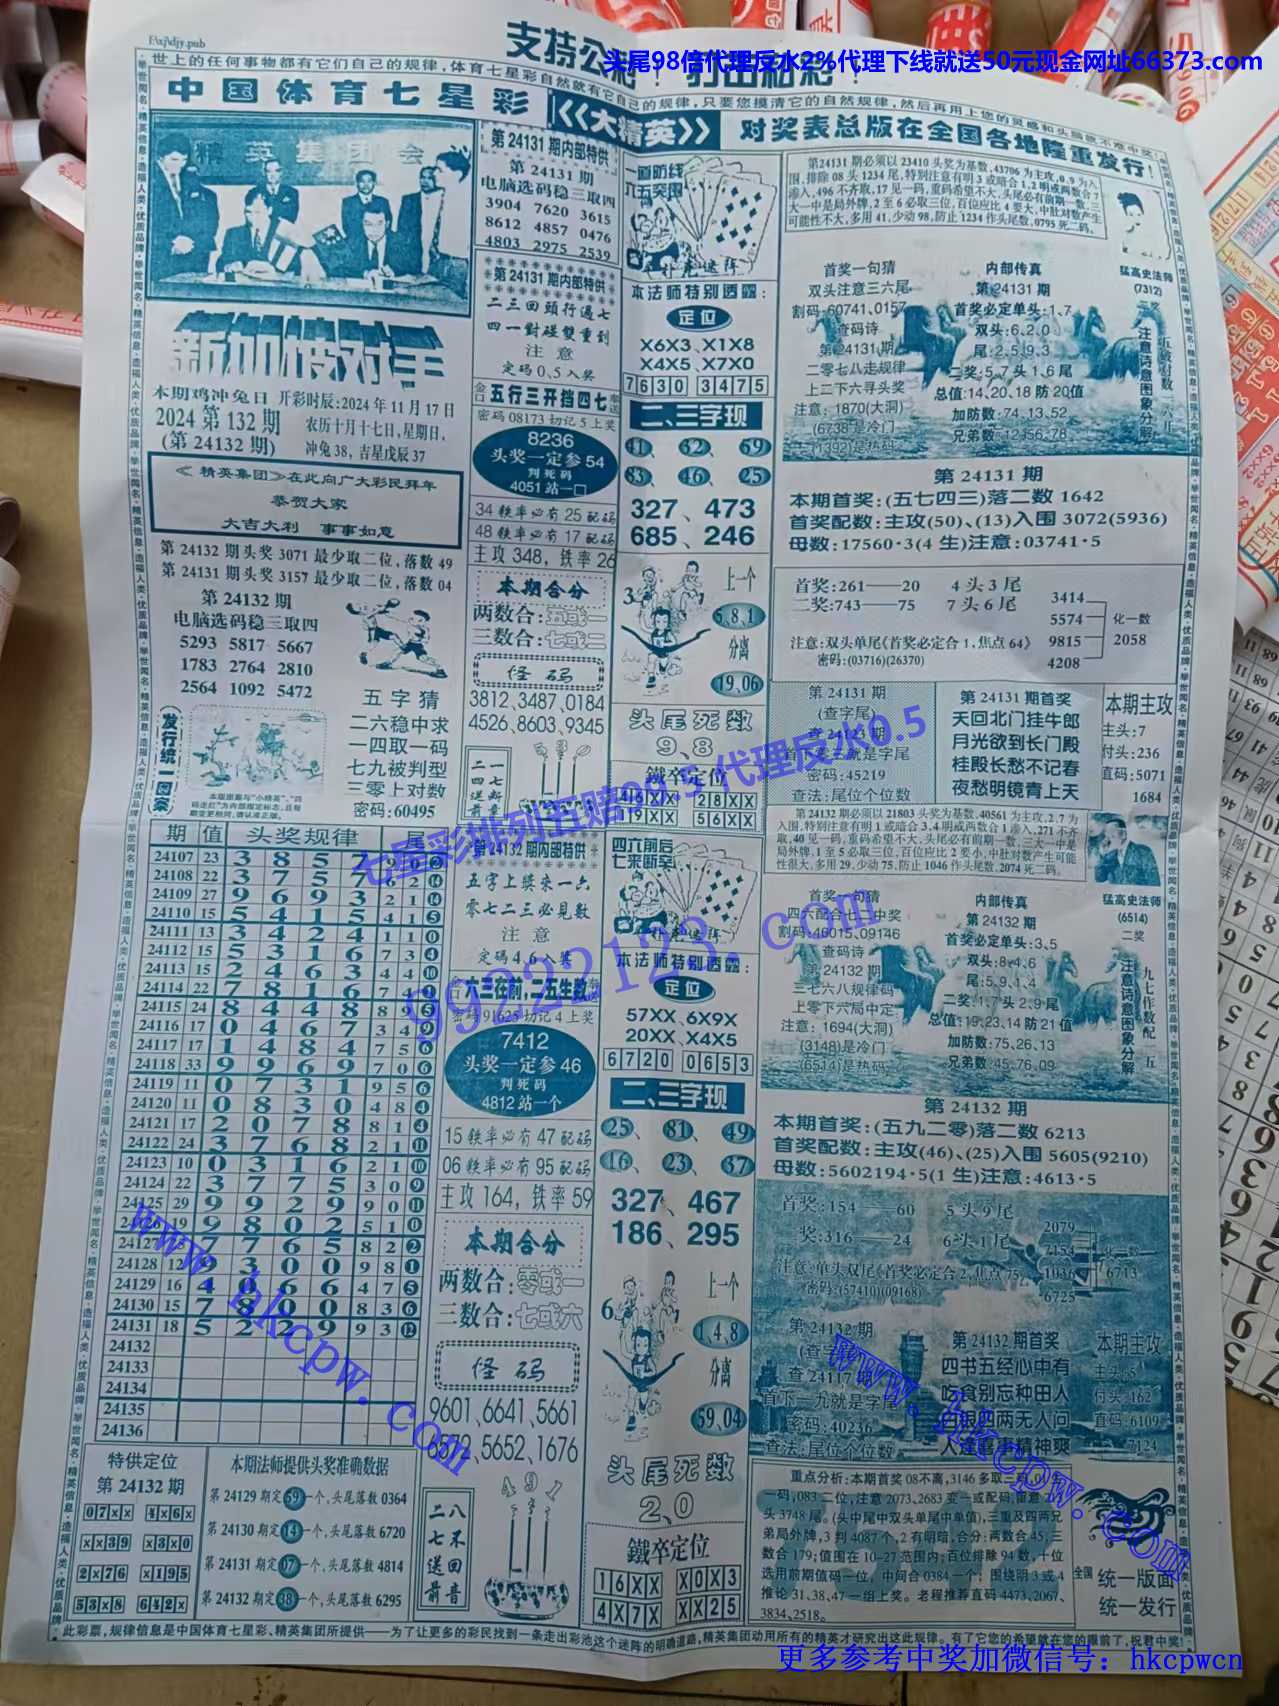 f:\xj\djy.pub
头尾98倍代理反水2%代理下线就送50元现金网址66373.com
世上的任何事物都有它们自己的规律,体育七星彩自然就有它自己的规律,只要您摸清它的自然规律,然后再用上您的灵感和头脑
中国体育七星彩
《大精英》
对奖表总版在全国各地隆重发行!
精英集团会
新加坡对手
本期鸡冲兔日 开彩时辰:2024年11月17日
2024 第 132 期
(第 24132 期)
农历十月十七日,星期日,
冲兔 38, 吉星戊辰 37
《精英集团》在此向广大彩民拜年
恭贺大家
大吉大利 事事如意
第 24132 期头奖 3071 最少取二位,落数 49
第 24131 期头奖 3157 最少取二位,落数 04
第 24132 期
电脑选码稳三取四
5293 5817 5667
1783 2764 2810
2564 1092 5472
发行统一图案
五字猜
二六稳中求
一四取一码
七九被判型
三零上对数
密码:60495
期 值 头奖规律 尾
24107 23 3 8 5 7
24108 22 3 7 5 7 6 2 14
24109 27 9 6 9 3 2 1 14
24110 15 5 4 1 5 4 1 5
24111 13 3 4 2 4 1 1
24112 15 5 3 1 6 7 3 4
24113 15 2 4 6 3 4 4 10
24114 22 7 8 1 6 7 4
24115 24 8 4 4 8 8 9 5
24116 17 0 4 6 7 3 4 9
24117 17 1 4 8 4 7 5 6
24118 33 9 9 6 9 7 0 6
24119 11 0 7 3 1 9 5 6
24120 11 0 8 3 0 4 8 4
24121 17 2 0 7 8 8 1 4
24122 24 3 7 6 8 2 1 11
24123 10 0 3 1 6 2 1 10
24124 22 3 7 7 5 3 0 9
24125 29 9 9 2 9 9 0 11
24126 19 9 8 0 2 5 1 0
24127 7 7 6 5 8 2 2
24128 12 9 3 0 0 9 8 1
24129 16 4 0 6 6 4 7 5
24130 15 7 8 0 0 8 3 6
24131 18 5 2 2 9 9 3 12
24132
24133
24134
24135
24136
特供定位
第 24132 期
07xx 4x6x
xx39 x3x0
2x76 x195
53x8 642x
本期法师提供头奖准确数据
第 24129 期定 59 一个,头尾落数 0364
第 24130 期定 14 一个,头尾落数 6720
第 24131 期定 07 一个,头尾落数 4814
第 24132 期定 38 一个,头尾落数 6295
第 24131 期内部特供
第 24131 期
电脑选码稳三取四
3904 7620 3615
8612 4857 0476
4803 2975 2539
第 24131 期内部特供
二三回頭行遍七
四一對碰雙重到
注意
定码 0,5 入奖
五行三开挡四七
密码 08173 切记 5 上奖
8236
头奖一定参 54
判死码
4051 站一□
34 铁率必有 25 配码
48 铁率必有 17 配码
主攻 348, 铁率 26
本期合分
两数合:五或一
三数合:七或二
怪码
3812、3487、0184
4526、8603、9345
第 24132 期内部特供
五字上獎来一六
零七二三必見数
注意
定码 4,6 入奖
六三在前,二五生数
密码 91625 切记 4 上奖
7412
头奖一定参 46
判死码
4812 站一个
15 铁率必有 47 配码
06 铁率必有 95 配码
主攻 164, 铁率 59
本期合分
两数合:零或一
三数合:七或六
怪码
9601、6641、5661
6572、5652、1676
4 9 1
二八
四不
送回
前音
一道防线
六五突围
扑克迷阵
本法师特别透露:
定位
X6X3、X1X8
X4X5、X7X0
7630 3475
二、三字现
41、62、59
83、46、25
327、473
685、246
3
上一个
5,8,1
分离
19,06
头尾死数
9、8
鐵卒定位
46XX 28XX
X19XX 56XX
四六前后
七来断早
扑克迷阵
本法师特别透露:
定位
57XX、6X9X
20XX、X4X5
6720 0653
二、三字现
25、81、49
16、23、37
327、467
186、295
6
上一个
1,4,8
分离
59,04
头尾死数
2、0
鐵卒定位
16XX X0X3
4X7X XX25
第24131期必须以 23410 头奖为基数,43706 为主攻,0.9 为入
围,排除 08 头 1234 尾,特别注意有明 3 或暗合 1,2 明或两数合 7
渗入,496 不齐取,17 见一码,重码希望不大,头尾必有前期一数,三
大一中是局外牌,2 至 6 必取三位,百位应比 4 要大,中肚对数产生
可能性不大,多用 41,少动 98,防止 1234 作头尾数,0795 死二码。
首奖一句猜
双头注意三六尾
割码:60741,0157
查码诗
第 24131 期
二零七八走规律
上二下六寻头奖
注意: 1870(大洞)
(6738)是冷门
(1392)是热码
内部传真
第 24131 期
首奖必定单头:1,7
双头:6,2,0
尾:2,5,9,3
二奖:5,7头1,6尾
总值:14,20,18 防 20值
加防数:74,13,52
兄弟数:12,56,78
猛高史法师
(7312)
二奖
注意诗意图象分解
第 24131 期
本期首奖:(五七四三)落二数 1642
首奖配数:主攻(50)、(13)入围 3072(5936)
母数:17560·3(4 生)注意:03741·5
首奖:261——20 4 头 3 尾
二奖:743——75 7 头 6 尾
注意:双头单尾《首奖必定合 1,焦点 64》
密码:(03716)(26370)
3414
5574
9815
4208
化一数
2058
第 24131 期
(查字尾)
查 24123 期
首下奖三就是字尾
密码:45219
查法:尾位个位数
第 24131 期首奖
天回北门挂牛郎
月光欲到长门殿
桂殿长愁不记春
夜愁明镜青上天
本期主攻
主头:7
付头:236
直码:5071
1684
第 24132 期必须以 21803 头奖为基数,40561 为主攻,2.7 为
入围,特别注意有明 1 或暗合 3,4 明或两数合 1 渗入,271 不齐
取,40 见一码,重码希望不大,头尾必有前期一数,三大一中是
局外牌,1 至 5 必取三位,百位应比 2 要小,中肚对数产生可能
性很大,多用 29,少动 75,防止 1046 作头尾数,2074 死二码。
首奖一句猜
四六配合七二中奖
割码:46015,09146
查码诗
第 24132 期
三七六八规律码
上零下六局中定
注意: 1694(大洞)
(3148)是冷门
(6514)是热码
内部传真
第 24132 期
首奖必定单头:3,5
双头:8,4,6
尾:5,9,1,4
二奖:1,7头2,9尾
总值:19,23,14 防 21值
加防数:75,26,13
兄弟数:45,76,09
猛高史法师
(6514)
二奖
九七作数配一五
注意诗意图象分解
第 24132 期
本期首奖:(五九二零)落二数 6213
首奖配数:主攻(46)、(25)入围 5605(9210)
母数:5602194·5(1 生)注意:4613·5
首奖:154——60 5 头 9 尾
奖:316——24 6 头 1 尾
注意:单头双尾《首奖必定合 2,焦点 75
密码:(57410)(09168)
2079
7154
1036
6725
化一数
6713
第 24132 期
查 24117 期
首下一九就是字尾
密码:40236
查法:尾位个位数
第 24132 期首奖
四书五经心中有
吃食别忘种田人
白银百两无人问
人逢喜事精神爽
本期主攻
付头:162
直码:6109
7124
重点分析:本期首奖 08不离,3146 多取三码
一码,083 二位,注意 2073、2683 变一或配码,留意 2
头 3748 尾。(头中尾中双头单尾中单值),三重及四两兄
弟局外牌,3 判 4087 个,2 有明暗,合分:两数合 45;三
数合 179;值围在 10-27 范围内;百位排除 94 数,十位
选用前期值码一位,中间合 0384 一个;围绕明 3 或 4
推论 31、38、47 一组上奖。老程推荐直码 4473、2067、
3834、2518。
全国
统一版面
统一发行
此彩票,规律信息是中国体育七星彩、精英集团所提供——为了让更多的彩民找到一条走出彩池这个迷阵的明确道路,精英集团动用所有的精英才研究出这此规律。有了它您的希望就在您的眼前了,祝君中奖!
七星彩排列五赔99.5 代理反水0.5
99222123.com
www.hkcpw.com
www.hkcpw.com
更多参考中奖加微信号: hkcpwcn